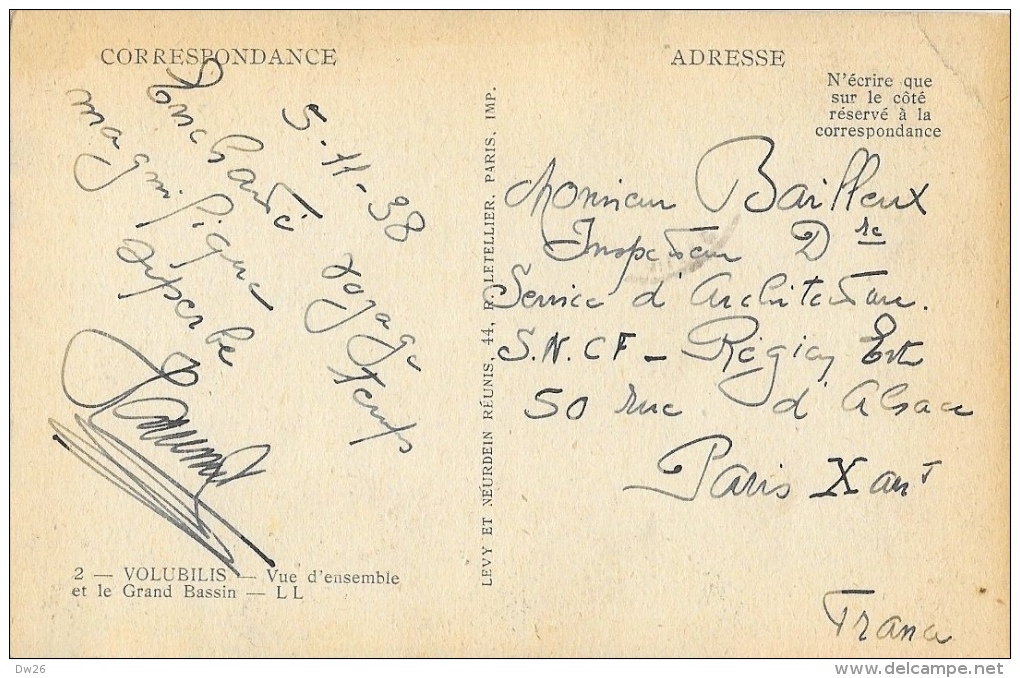 CORRESPONDANCE
5-11-38
Enchanté voyage
magnifique temps
superbe
2 — VOLUBILIS — Vue d'ensemble
et le Grand Bassin — LL
LEVY ET NEURDEIN RÉUNIS, 44, R. LETELLIER, PARIS, IMP.
ADRESSE
N'écrire que
sur le côté
réservé à la
correspondance
Monsieur Bailleux
Inspecteur Dre
Service d'Architecture.
S.N.CF - Région Est
50 rue d'Alsace
Paris X arrt
France
Dw26
delcampe.net